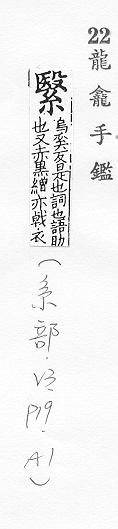 22龍龕手鑑
繄
烏奚反是也詞也語助
也又赤黒繒亦戟衣
(糸部.V3.P19.A1)